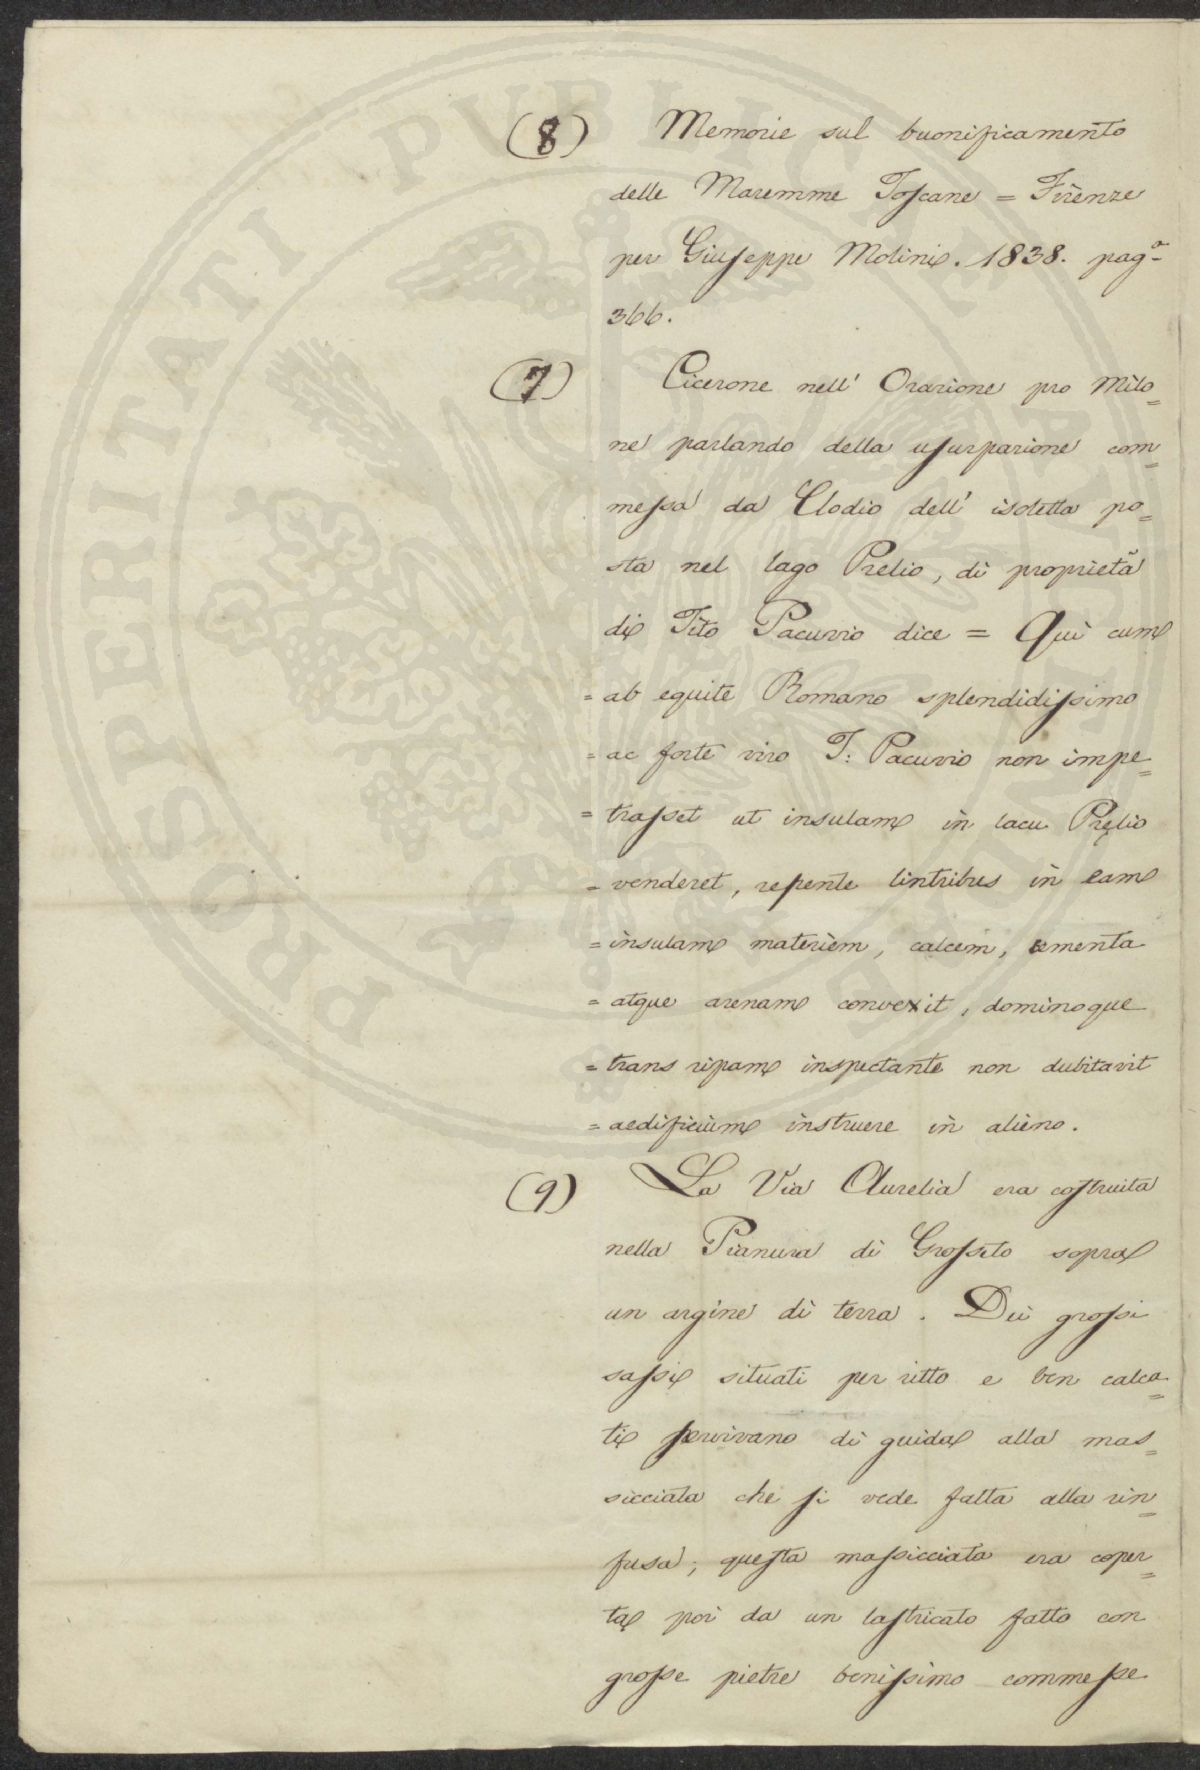 (8) Memorie sul buonificamento
delle Maremme Toscane = Firenze
per Giuseppe Molini. 1838. pag.ª
366.
(7) Cicerone nell' Orazione pro Milo=
ne parlando della usurpazione com=
messa da Clodio dell' isoletta po=
sta nel lago Prelio, di proprietà
di Tito Pacuvio dice = Qui cum
= ab equite Romano splendidissimo
= ac forte viro T: Pacuvio non impe=
= trasset ut insulam in lacu Prelio
= venderet, repente lintribus in eam
= insulam materiem, calcem, cementa
= atque arenam convexit, dominoque
= trans ripam inspectante non dubitavit
= aedificium instruere in alieno.
(9) La Via Aurelia era costruita
nella Pianura di Grosseto sopra
un argine di terra. Dei grossi
sassi situati per ritto e ben calca=
ti servivano di guida alla mas=
sicciata che si vede fatta alla rin=
fusa; questa massicciata era coper=
ta poi da un lastricato fatto con
grosse pietre benissimo commesse
PROSPERITATI PVBLICAE